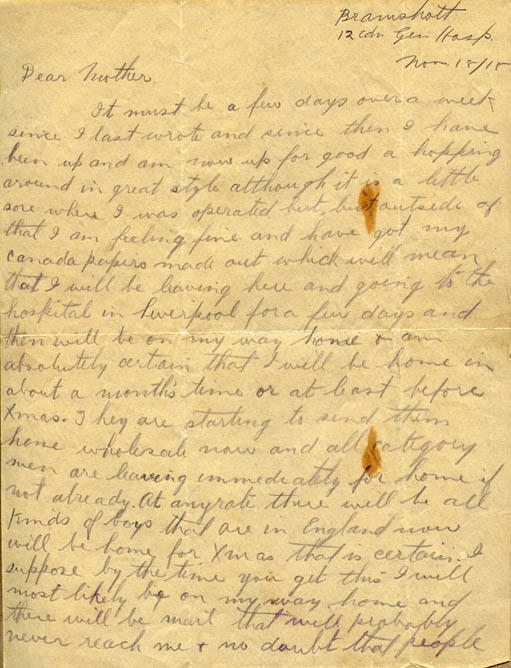 Bramshott
12 cdn Gen Hosp.
Nov 18/18
Dear Mother.
It must be a few days over a week
since I last wrote and since then I have
been up and am now up for good a hopping
around in great style although it is a little
sore where I was operated but, but outside of
that I am feeling fine and have got my
Canada papers made out which will mean
that I will be leaving here and going to the
hospital in Liverpool for a few days and
then will be on my way home & am
absolutely certain that I will be home in
about a month's time or at least before
Xmas. They are starting to send them
home wholesale now and all category
men are leaving immediately for home if
not already. At anyrate there will be all
kinds of boys that are in England now
will be home for Xmas that is certain. I
suppose by the time you get this I will
most likely be on my way home and
there will be mail that will probably
never reach me & no doubt that people